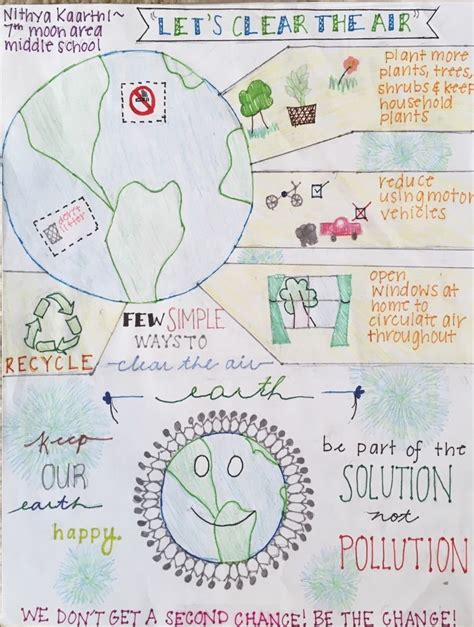 Nithya Kaarthi~
7th moon area
middle school
"LET'S CLEAR THE AIR"
plant more
plants, trees,
shrubs & keep
household
plants
don't
litter
reduce
using motor
vehicles
open
windows at
home to
circulate air
throughout
RECYCLE
FEW SIMPLE
WAYS TO
clear the air
earth
keep
OUR
earth
happy.
be part of the
SOLUTION
not
POLLUTION
WE DON'T GET A SECOND CHANCE! BE THE CHANGE!